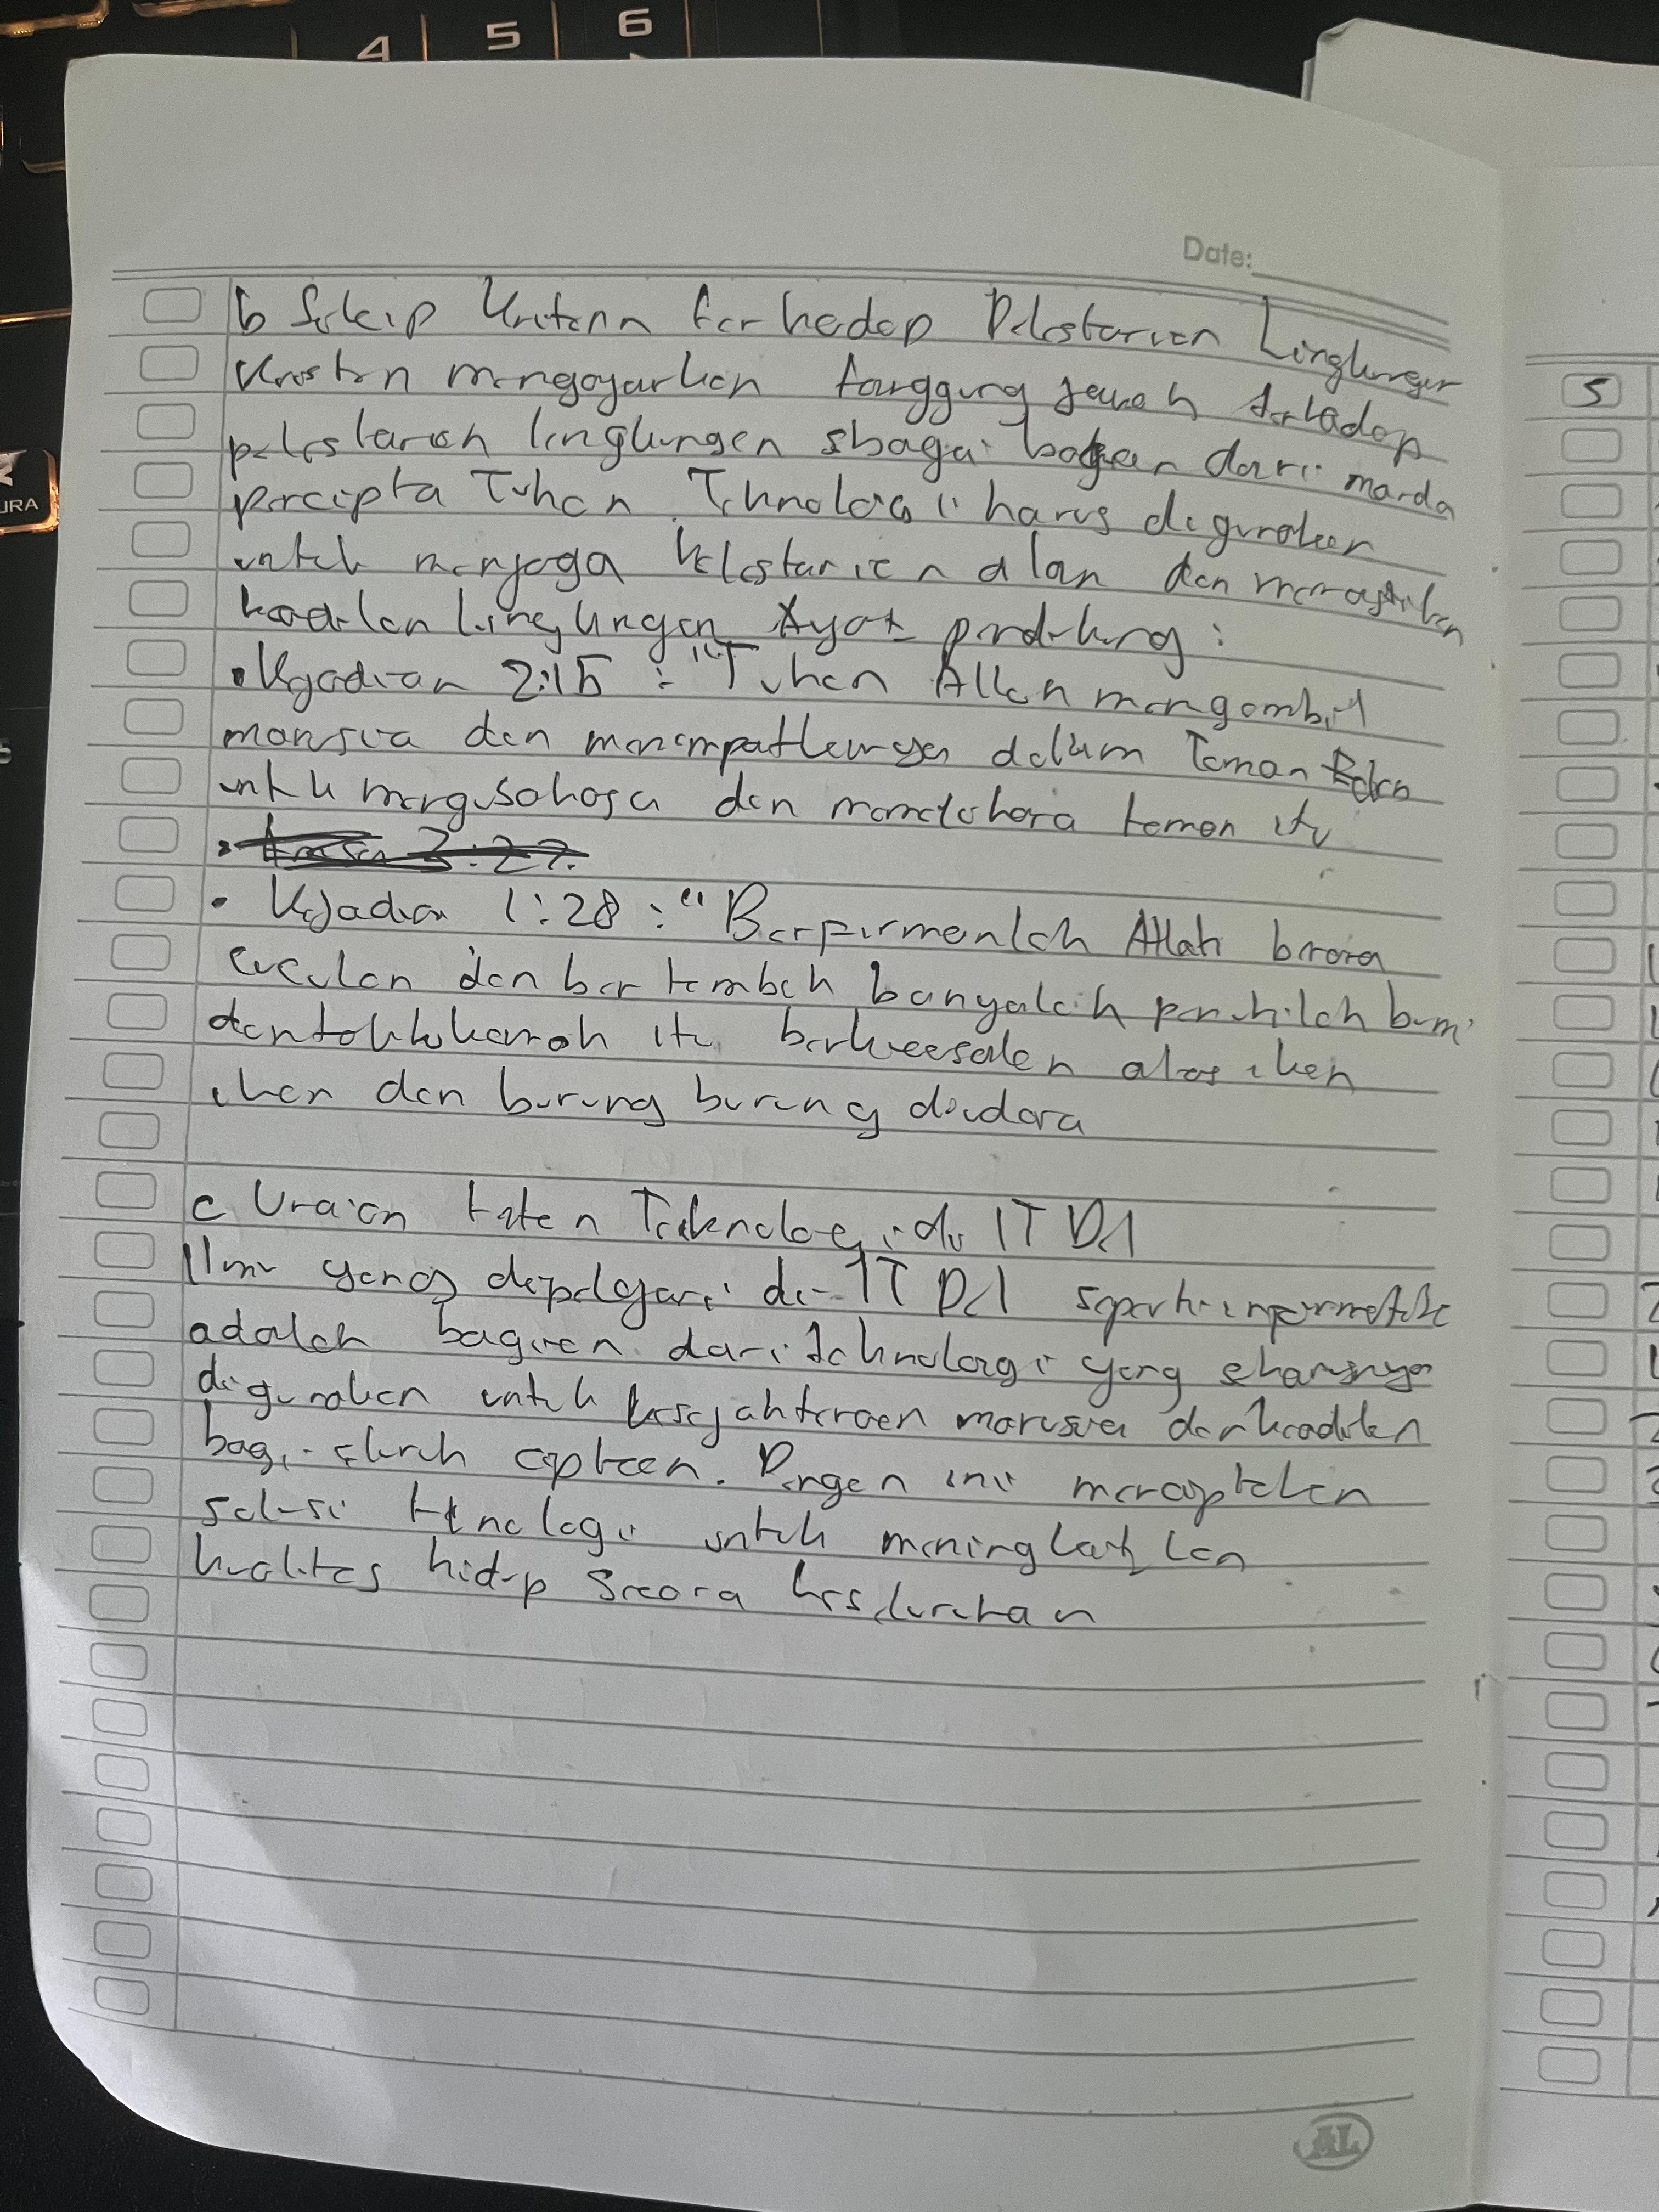 4 5 6
URA
Date:
b Sikap Kristen terhadap Pelestarian Lingkungan
Kristen mengajarkan tanggung jawab terhadap
pelestarian lingkungan sbagai bagian dari
percipta Tuhan. Tehnologi harus digunakan
untuk menjaga kelestarian alan dan memastikan
keadilan lingkungan Ayat pendukung :
• Kejadian 2:15 : "Tuhan Allah mengambil
manusia dan menempatkannya dalam Taman Eden
untuk mengusahaka dan memelihara taman itu
• Kejadian 1:28 : "Berfirmanlah Allah
dan bertambah banyaklah penuhilah bumi
dan taklukkanlah itu berkuasalah atas ikan
ikan dan burung burung diudara
c Uraian Teknologi di IT Del
Ilmu yang dipelajari di IT Del seperti informatika
adalah bagian dari tehnologi yang seharusnya
digunakan untuk kesejahteraan manusia dan keadilan
bagi seluruh ciptaan. Dengan ini menciptakan
solusi teknologi untuk meningkatkan
kualitas hidup secara keseluruhan
S
AL